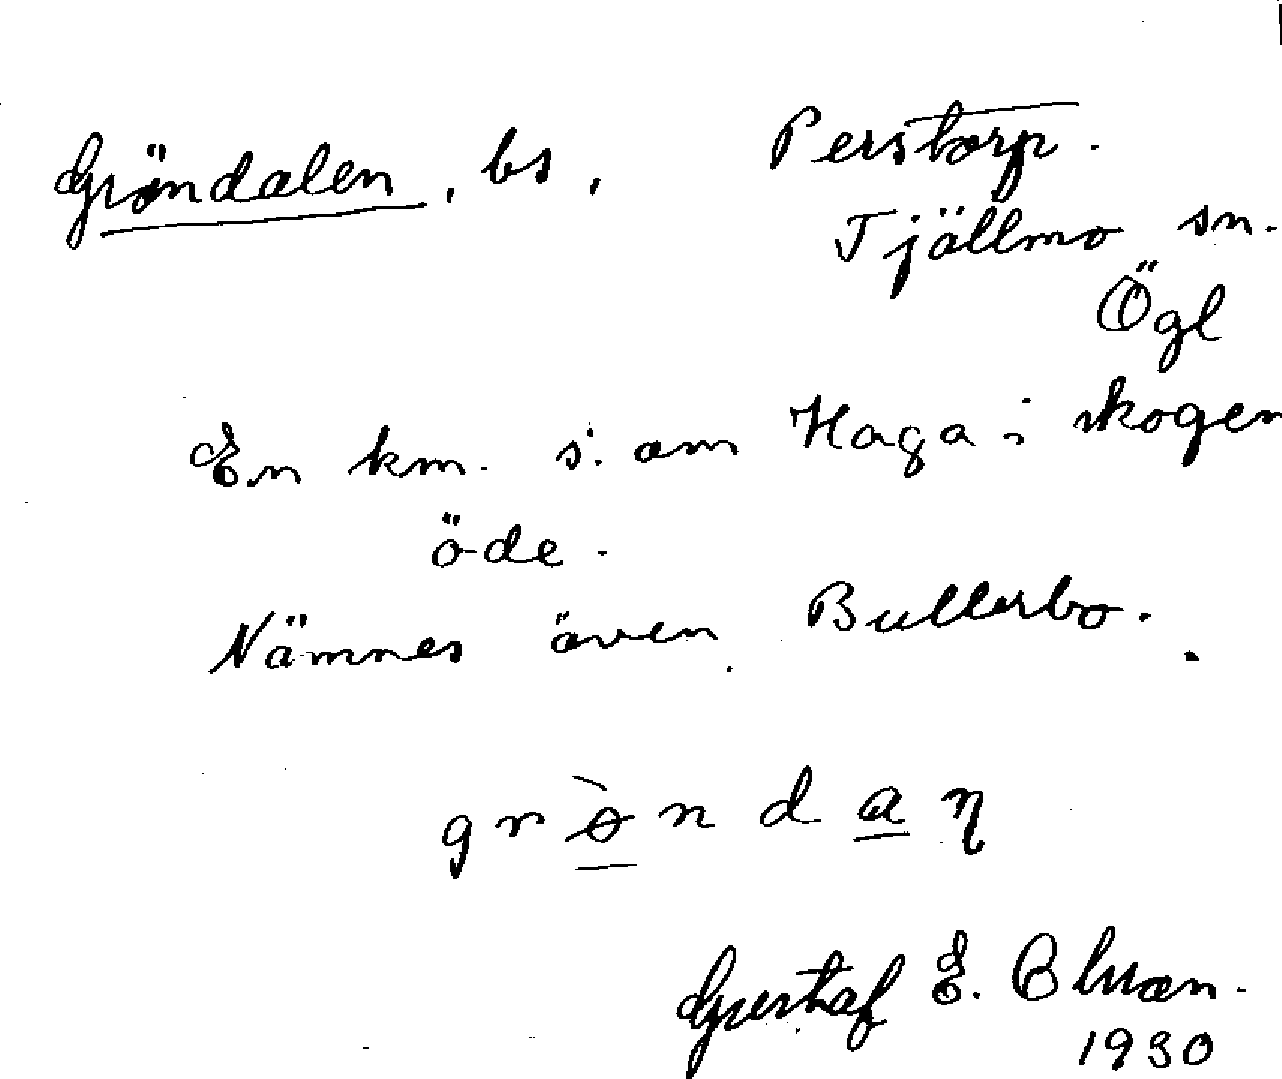 Gröndalen, bs, Perstorp.
Tjällmo sn.
Ögl
En km. s. om Haga i skogen
öde.
Nämnes även Bullerbo.
grø̀ndaη
Gustaf E.
1930